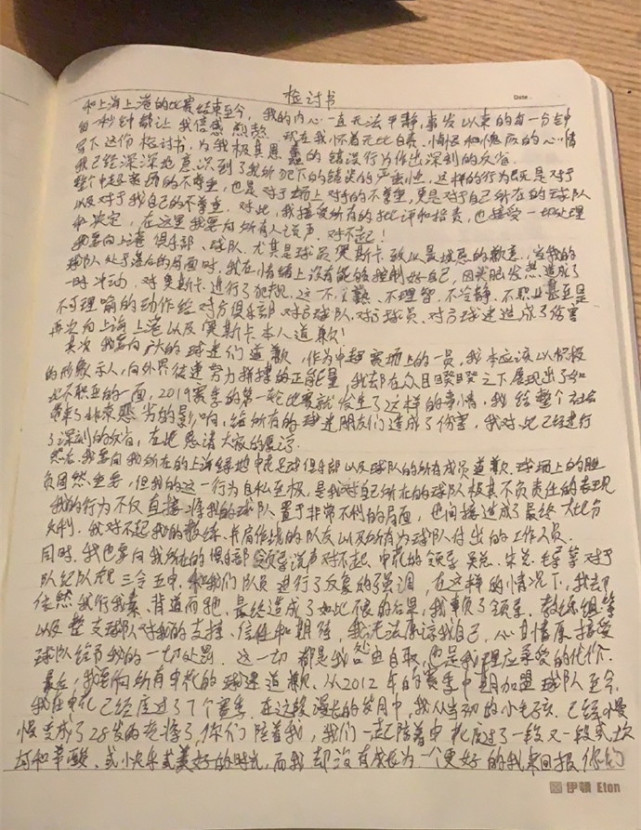 检讨书
Date
和上海上港的比赛结束至今，我的内心一直无法平静，事发以来的每一分钟
每一秒钟都让我倍感煎熬。现在我怀着无比自责、悔恨和愧疚的心情
写下这份检讨书，为我极其愚蠢的错误行为作出深刻的反省。
我已经深深地意识到了我所犯下的错误的严重性，这样的行为既是对于
整个中超赛场的不尊重，也是对于场上对手的不尊重，更是对于自己所在的球队
以及对于我自己的不尊重。对此，我接受所有的批评和指责，也接受一切处理
和决定，在这里我要向所有人说声，对不起！
我要向上港俱乐部、球队、尤其是球员奥斯卡致以最诚恳的歉意，当我的
球队处于落后的局面时，我在情绪上没有能够控制好自己，因我脑发热造成了
一时冲动，对奥斯卡进行了犯规，这一不文明、不理智、不冷静、不职业甚至是
不可理喻的动作给对方俱乐部、对方球队、对方球员、对方球迷造成了伤害
再次向上海上港以及奥斯卡本人道歉！
其次，我要向广大的球迷们道歉，作为中超赛场上的一员，我本应该以积极
的形象示人，向外界传递努力拼搏的正能量，我却在众目睽睽之下展现出了如
此不职业的一面，2019赛季的第一轮比赛就发生了这样的事情，我给整个社会
带来了非常恶劣的影响，给所有的球迷朋友们造成了伤害，我对此已经进行
了深刻的反省，在此恳请大家的原谅。
然后，我要向我所在的上海绿地申花足球俱乐部以及球队的所有成员道歉，球场上的胜
负固然重要，但我的这一行为自私至极，是我对自己所在的球队极其不负责任的表现
我的行为不仅直接将我的球队置于非常不利的局面，也间接造成了最终大比分
失利。我对不起我的教练、并肩作战的队友以及所有为球队付出的工作人员。
同时，我也要向我所在的俱乐部领导说声对不起，申花的领导吴总、朱总、毛等等对于
队纪队规三令五申，和我们队员进行了反复的强调，在这样的情况下，我却
依然我行我素、背道而驰，最终造成了如此不良的后果，我辜负了领导、教练组等
以及整支球队对我的支持、信任和期待，我无法原谅我自己，心甘情愿接受
球队给予我的一切处罚，这一切都是我咎由自取，也是我理应承受的代价。
最后，我要向所有申花的球迷道歉，从2012年的赛季中期加盟球队至今，
我在申花已经度过了7个赛季。在这段漫长的岁月中，我从当初的小毛孩，已经慢
慢变成了28岁的老将了，你们陪着我，我们一起陪着申花度过了一段又一段或坎
坷和辛酸、或快乐或美好的时光，而我却没有成长为一个更好的我来回报你们
伊顿 Eton